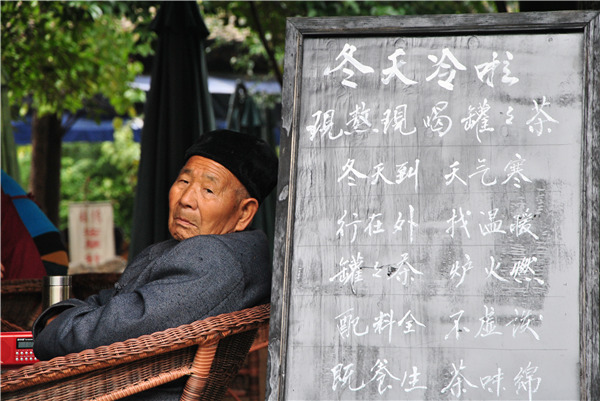 冬天冷啦
现熬现喝罐罐茶
冬天到 天气寒
行在外 找温暖
罐罐茶 炉火燃
配料全 不虚谈
既养生 茶味绵